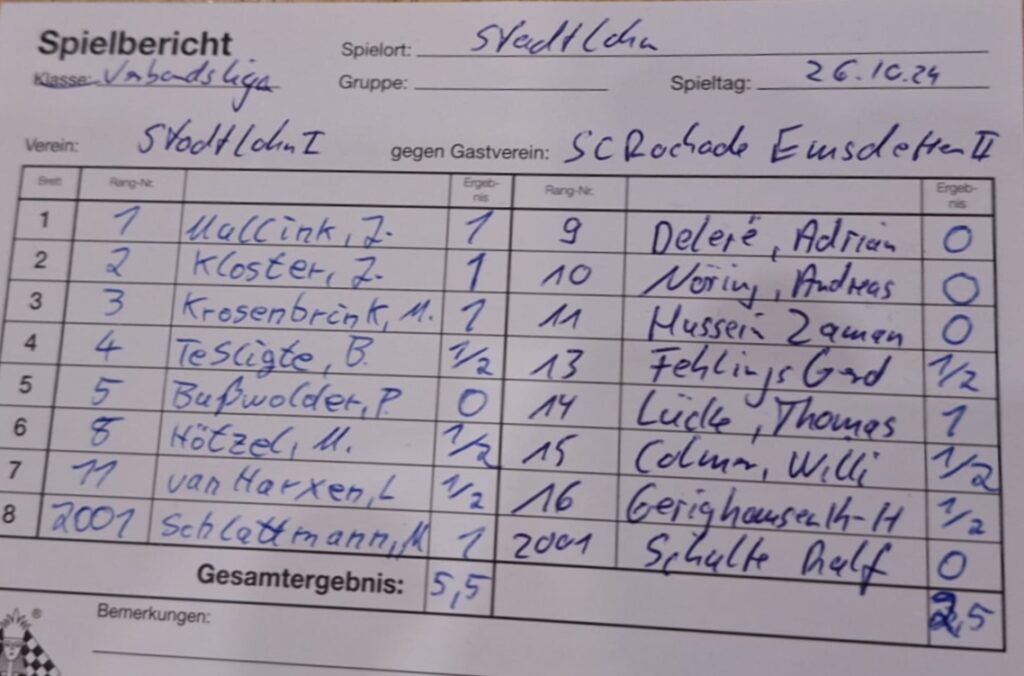 Spielbericht Spielort: Stadtlohn
Klasse: Verbandsliga Gruppe: Spieltag: 26.10.24
Verein: Stadtlohn I gegen Gastverein: SC Rochade Emsdetten II
Brett Rang-Nr. Ergeb-nis Rang-Nr. Ergeb-nis
1 1 Mallink, J. 1 9 Delerë, Adrian 0
2 2 Kloster, J. 1 10 Nöring, Andreas 0
3 3 Krosenbrink, M. 1 11 Hussein Zaman 0
4 4 TeSligte, B. 1/2 13 Fehlings Gerd 1/2
5 5 Bußwolder, P. 0 14 Lücke, Thomas 1
6 8 Hötzel, M. 1/2 15 Colmer, Willi 1/2
7 11 van Harxen, L 1/2 16 Gerighausen K-H 1/2
8 2001 Schlattmann, M 1 2001 Schulte Ralf 0
Gesamtergebnis: 5,5 2,5
Bemerkungen: